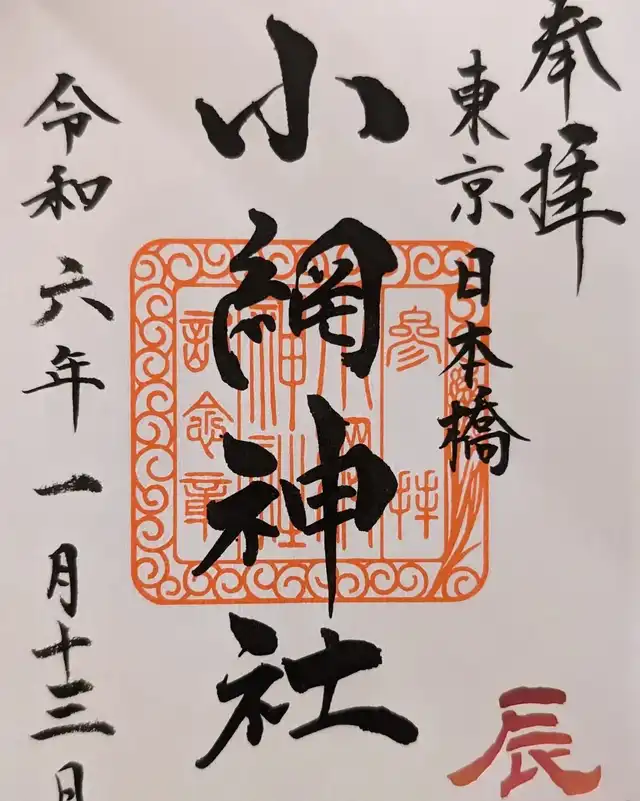 奉拝
東京 日本橋
小網神社
参拝
小網
神社
記念章
令和六年一月十三日
辰